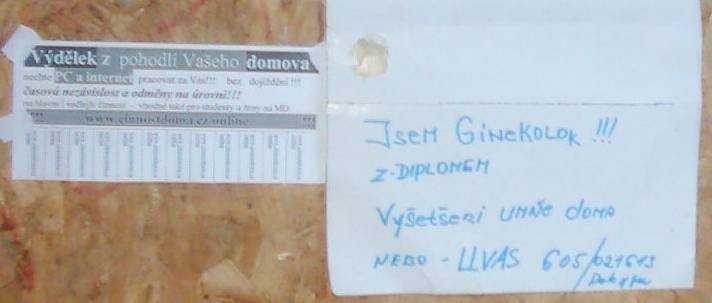 Výdělek z pohodlí Vašeho domova
nechte PC a internet pracovat za Vás!!! bez dojíždění !!!
časová nezávislost a odměny na úrovni!!!
na hlavní i vedlejší činnost - vhodné také pro studenty a ženy na MD
!!! www.cinnostdoma.cz/online !!!
Jsem Ginekolok !!!
Z-DIPLOMEM
Vyšetšeni UMŇE doma
NEBO - LLVÁS 605/021613